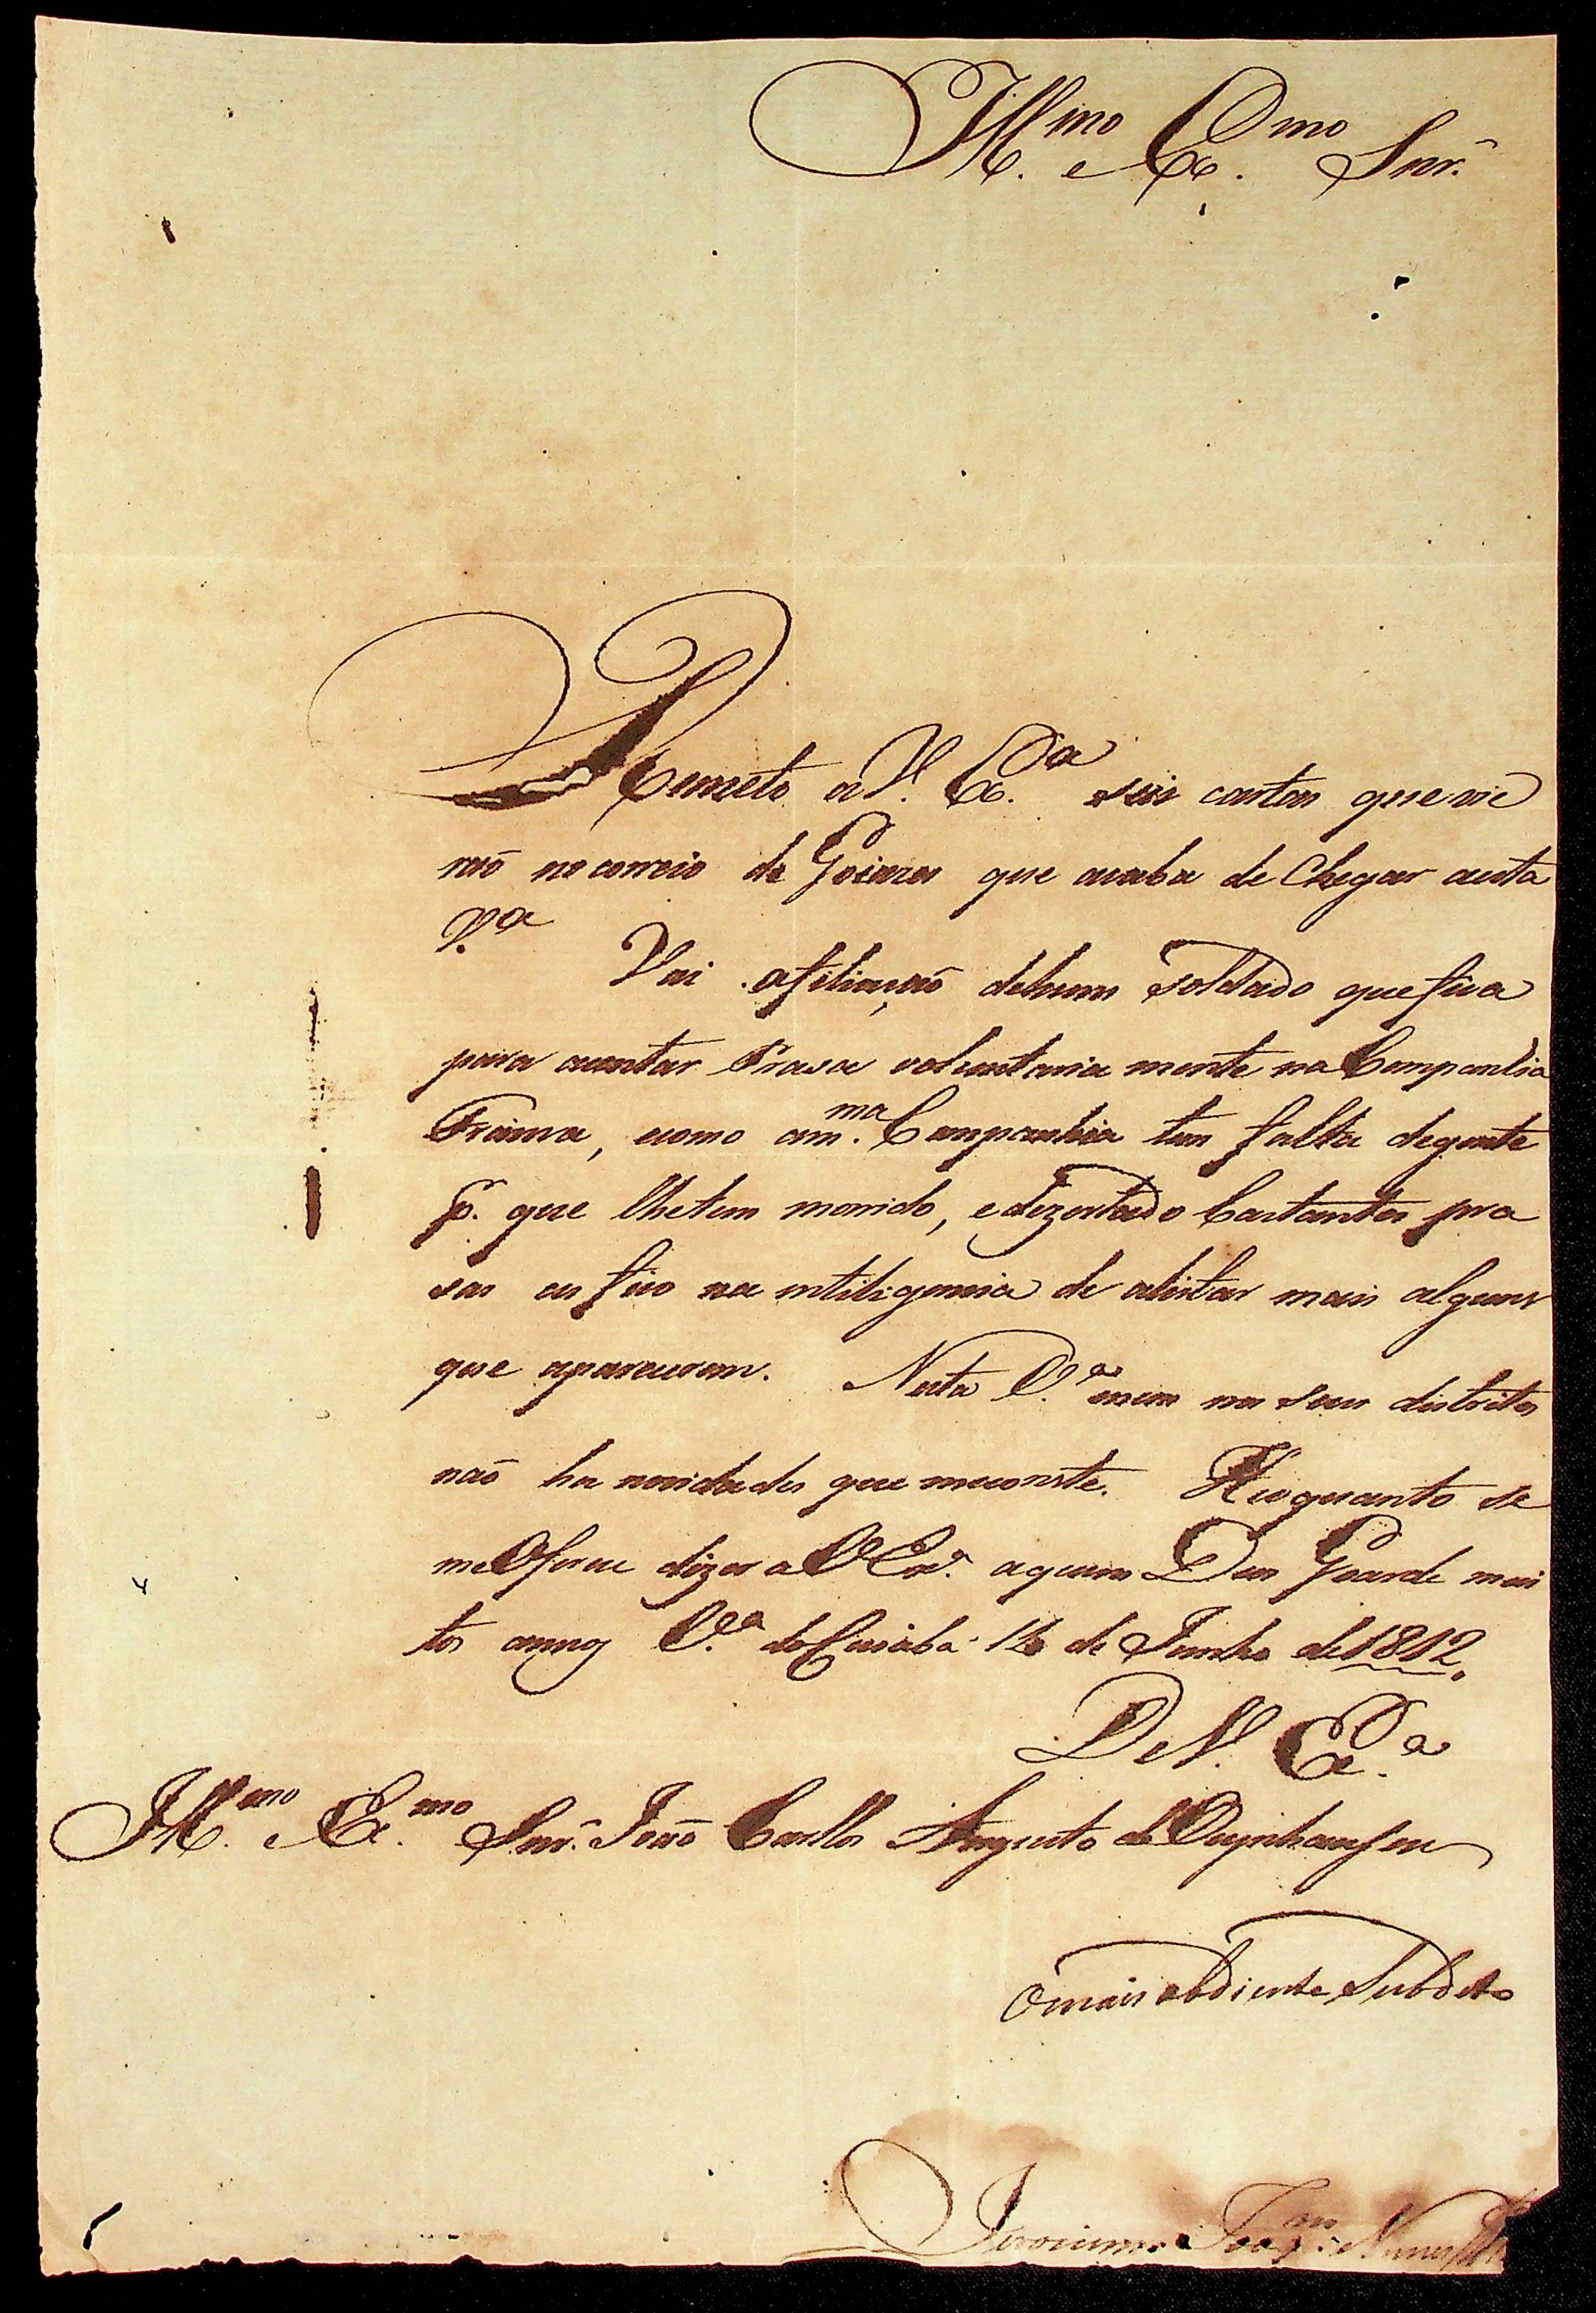 Ill.mo e Ex.mo Snr.
Remeto a V. Ex.a seis cartas que vie
raõ no correio de Goiazes que acaba de Chegar aesta
V.a
Vai afiliaçaõ dehum Soldado que fica
para acentar Prasa voluntaria mente na Companhia
Franca, como am.ma Companhia tem falta degente
p.r que lhetem morrido, e dezertado bastantes pra
sas eu fico na intiligencia de alistar mais alguns
que aparecerem. Nesta V.a enem nos seus distritos
naõ ha novidades que meconste. He oquanto se
me Oferece dizer a V Ex.a aquem Deos Goarde mui
tos annos V.a do Cuiabá de Junho de 1812.
De V. Ex.a
Ill.mo e Ex.mo Snr. Joaõ Carllos Augusto de Oeynhausen
O mais obdiente Subdito
Jeronimo Joaq.m Nunes